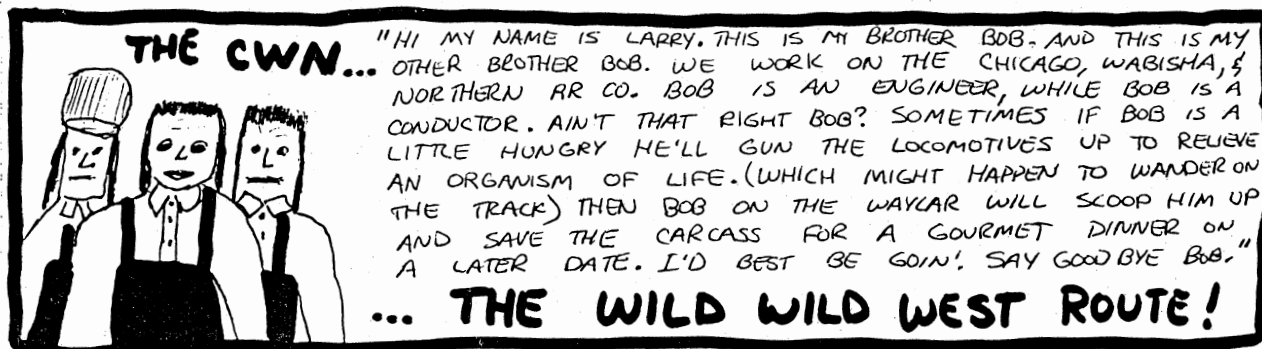 THE CWN...
"HI MY NAME IS LARRY. THIS IS MY BROTHER BOB. AND THIS IS MY
OTHER BROTHER BOB. WE WORK ON THE CHICAGO, WABISHA, &
NORTHERN RR CO. BOB IS AN ENGINEER, WHILE BOB IS A
CONDUCTOR. AIN'T THAT RIGHT BOB? SOMETIMES IF BOB IS A
LITTLE HUNGRY HE'LL GUN THE LOCOMOTIVES UP TO RELIEVE
AN ORGANISM OF LIFE. (WHICH MIGHT HAPPEN TO WANDER ON
THE TRACK) THEN BOB ON THE WAYCAR WILL SCOOP HIM UP
AND SAVE THE CARCASS FOR A GOURMET DINNER ON
A LATER DATE. I'D BEST BE GOIN'. SAY GOOD BYE BOB."
... THE WILD WILD WEST ROUTE!